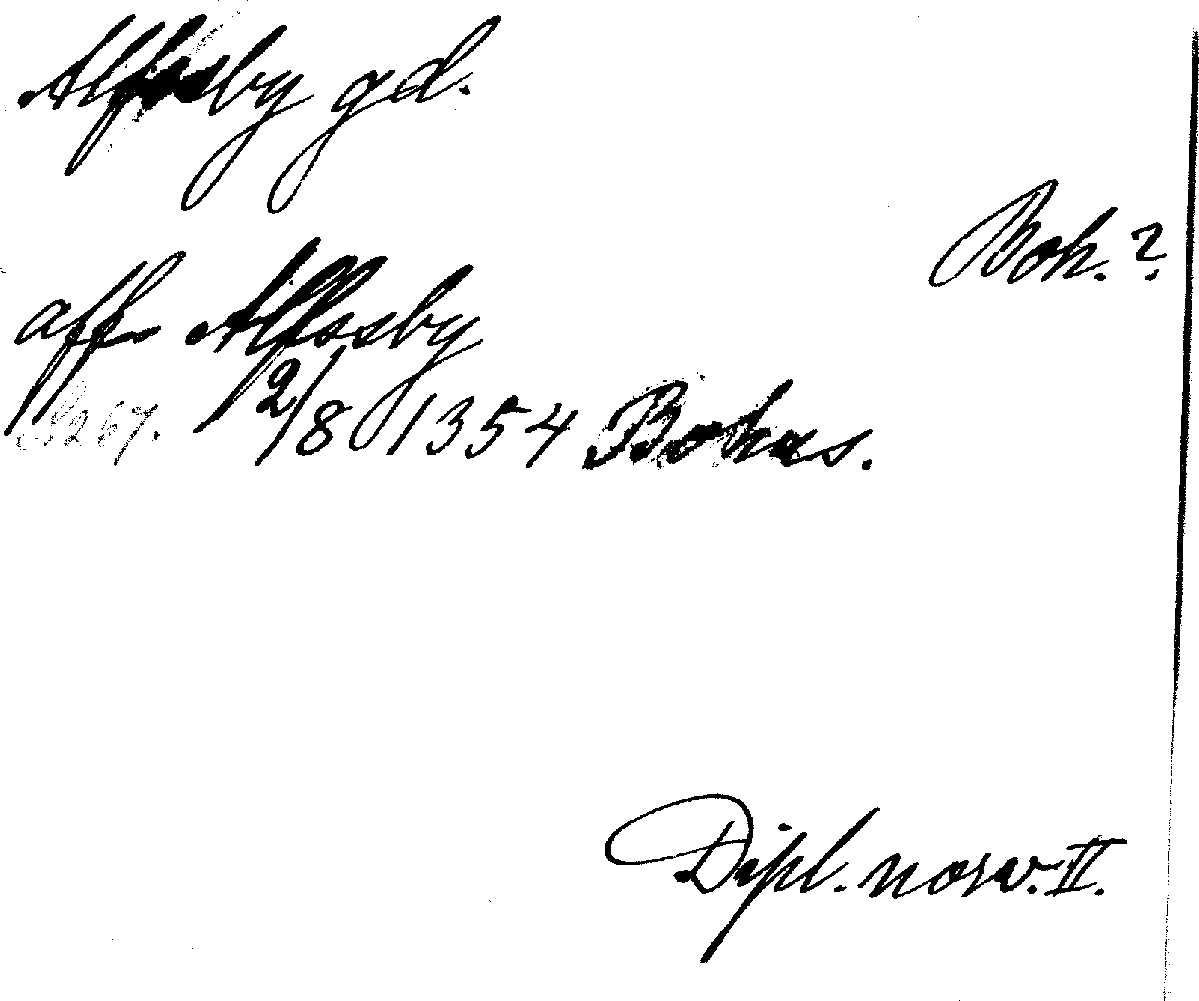 Alfsby gd.
Boh. ?
aff Alfssby
S. 267. 12/8 1354 Bohus.
Dipl. norv. II.